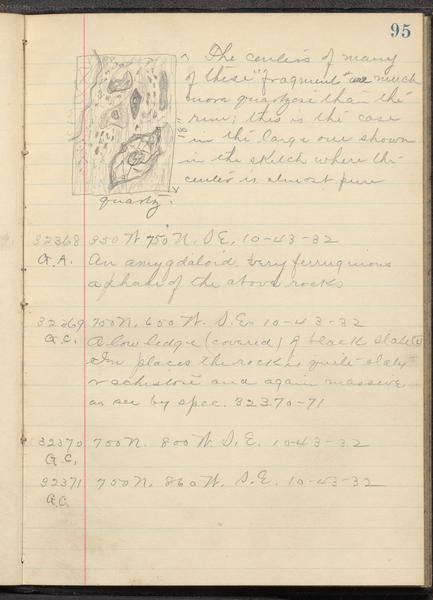 95
The centers of many
of these "fragments" are much
more quartzose than the
rim; this is the case
18"
in the large one shown
in the sketch where the
center is almost pure
quartz.
32368 350 W. 750 N. S.E. 10-43-32
G.A. An amygdaloid. Very ferruginous
a phase of the above rocks
32369 700 N. 600 W. S.E. 10-43-32
G.C. A low ledge (covered) A black slate
In places the rock is quite slaty
& schistose and again massive
as see by spec. 32370-71
32370 700 N. 800 W. S.E. 10-43-32
G.C.
32371 700 N. 860 W. S.E. 10-43-32
G.C.